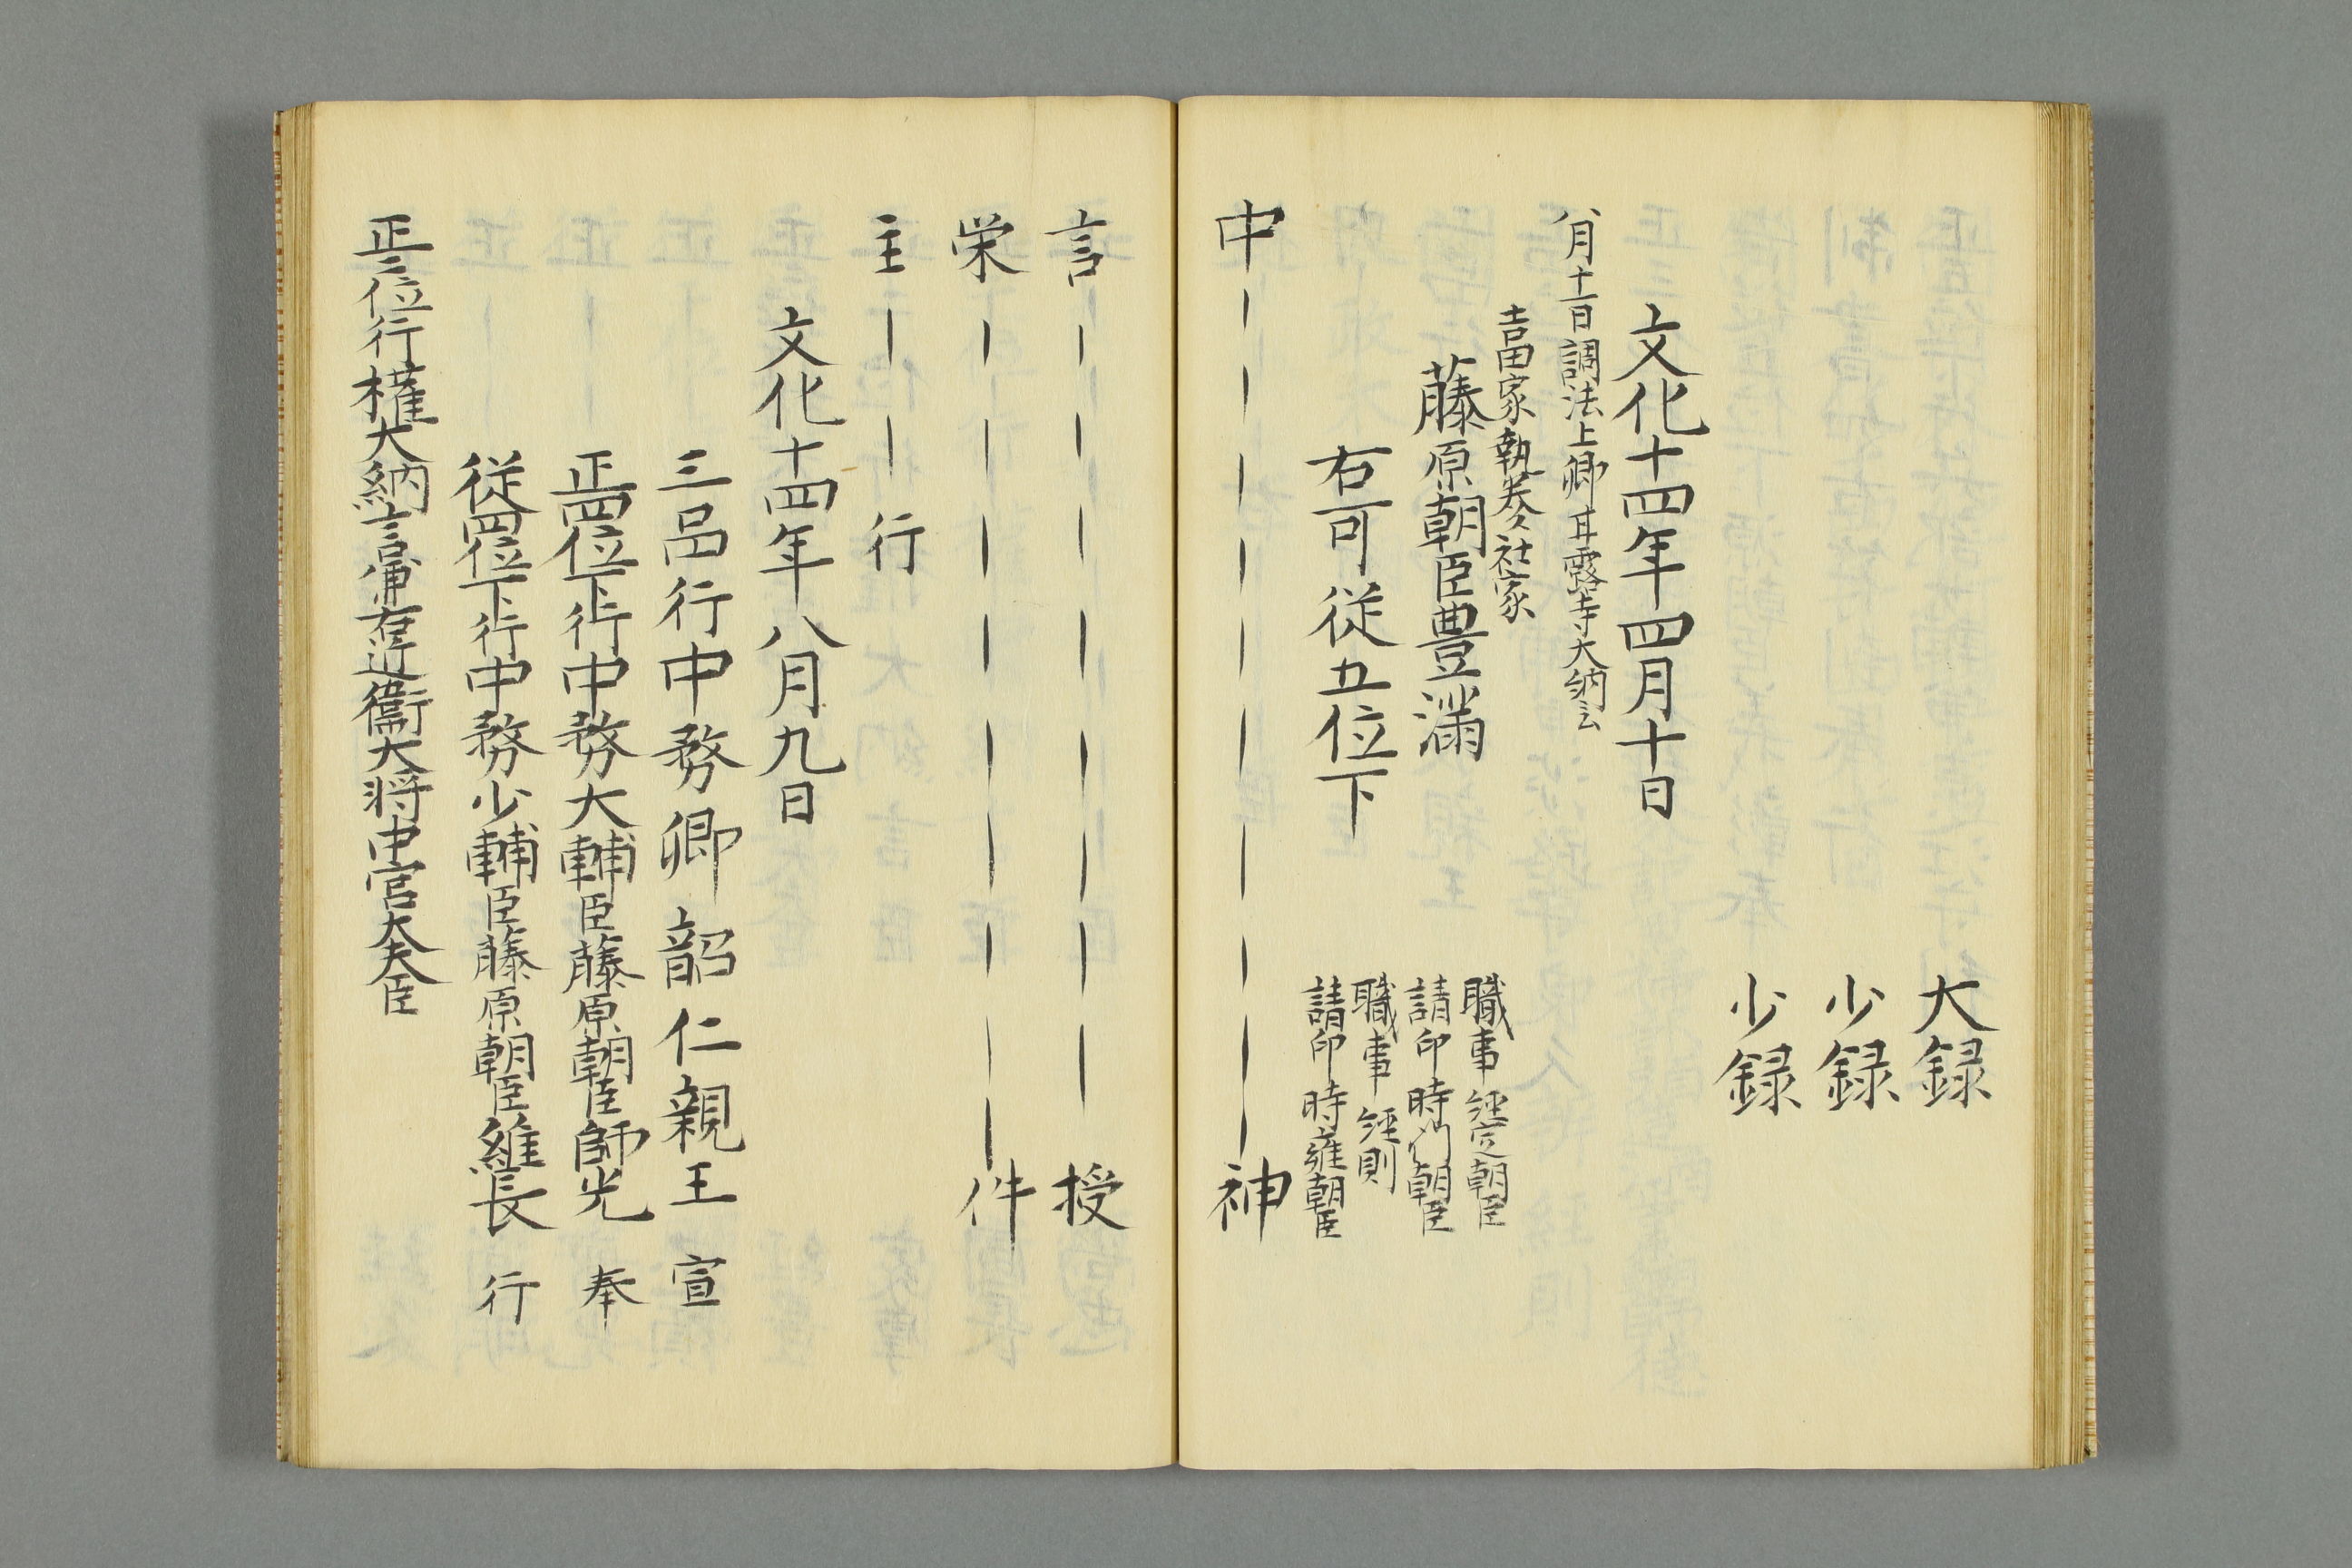 大録
少録
少録
文化十四年四月十日
八月十一日調法上卿甘露寺大納言云
吉田家執奏社家
藤原朝臣豊満
右可従五位下
職事経定朝臣
請印時門朝臣
職事経則
請印時雍朝臣
中―――――――――――神
言――――――――――授
栄――――――――――件
主――行
文化十四年八月九日
三品行中務卿韶仁親王 宣
正四位下行中務大輔臣藤原朝臣師光 奉
従四位下行中務少輔臣藤原朝臣維長 行
正二位行権大納言兼右近衛大将中宮大夫臣